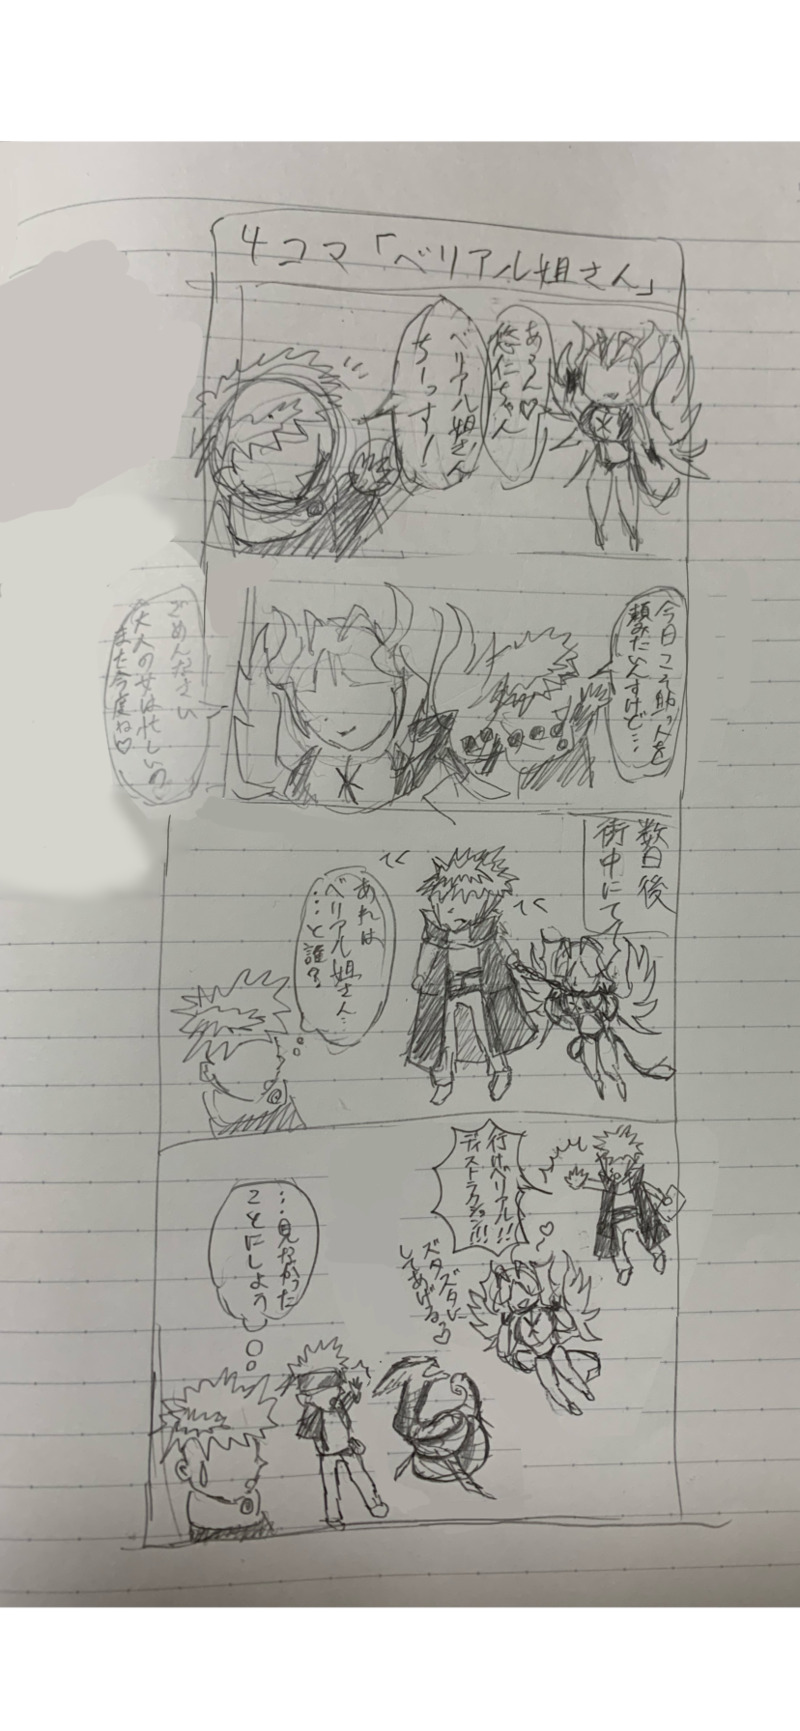 4コマ「ベリアル姐さん」
あらん♡
悠仁ちゃん
ベリアル姐さん
ちーっすー
今日こそ助っ人を
頼みたいんすけど…
ごめんなさい
大人の女は忙しいの
また今度ね♡
数日後
街中にて
あれは
ベリアル姐さん…
…と誰?
行けベリアル!!
ディストラクション!!!
ズタズタに
してあげる♡
…見なかった
ことにしよう